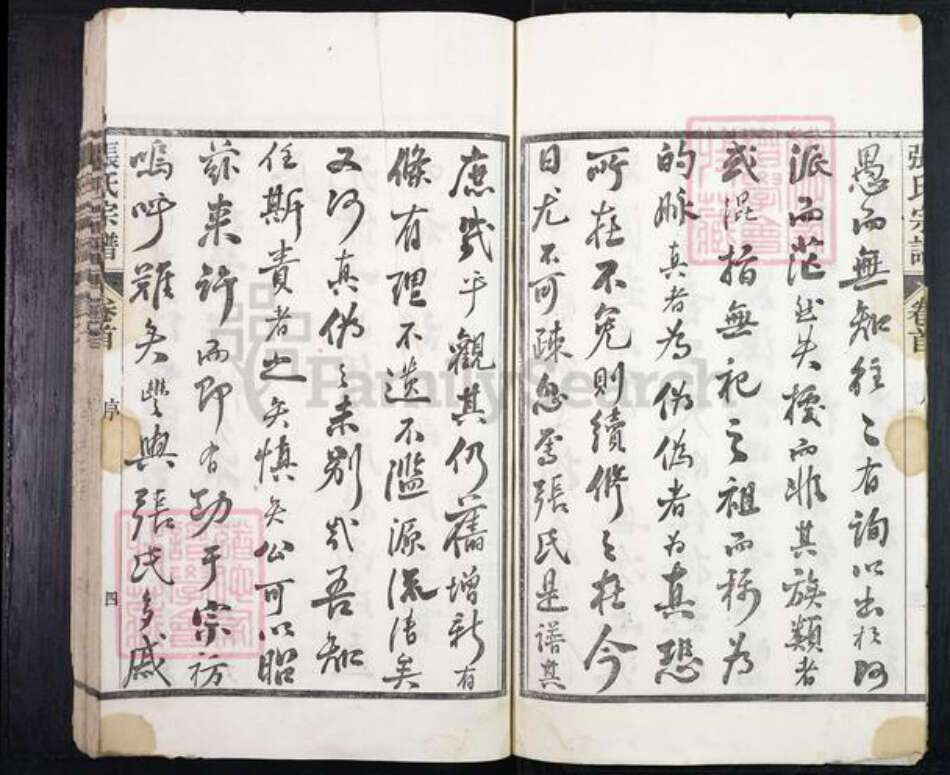 愚而無知往〻有詢以出於何
派而茫然失據而非其族類者
或混指無祀之祖而稱為
的脉真者為偽偽者為真恐
所在不免則續修之在今
日尤不可疎忽焉張氏是譜其
庶幾乎觀其仍舊增新有
條有理不遺不濫源流清矣
又何真偽之未別哉吾知
任斯責者也矣慎矣公可以昭
茲来許而即有功于宗祊
嗚呼難矣豐與張氏多戚
張氏宗譜
卷首
序
四
張氏宗譜
卷首
FamilySearch